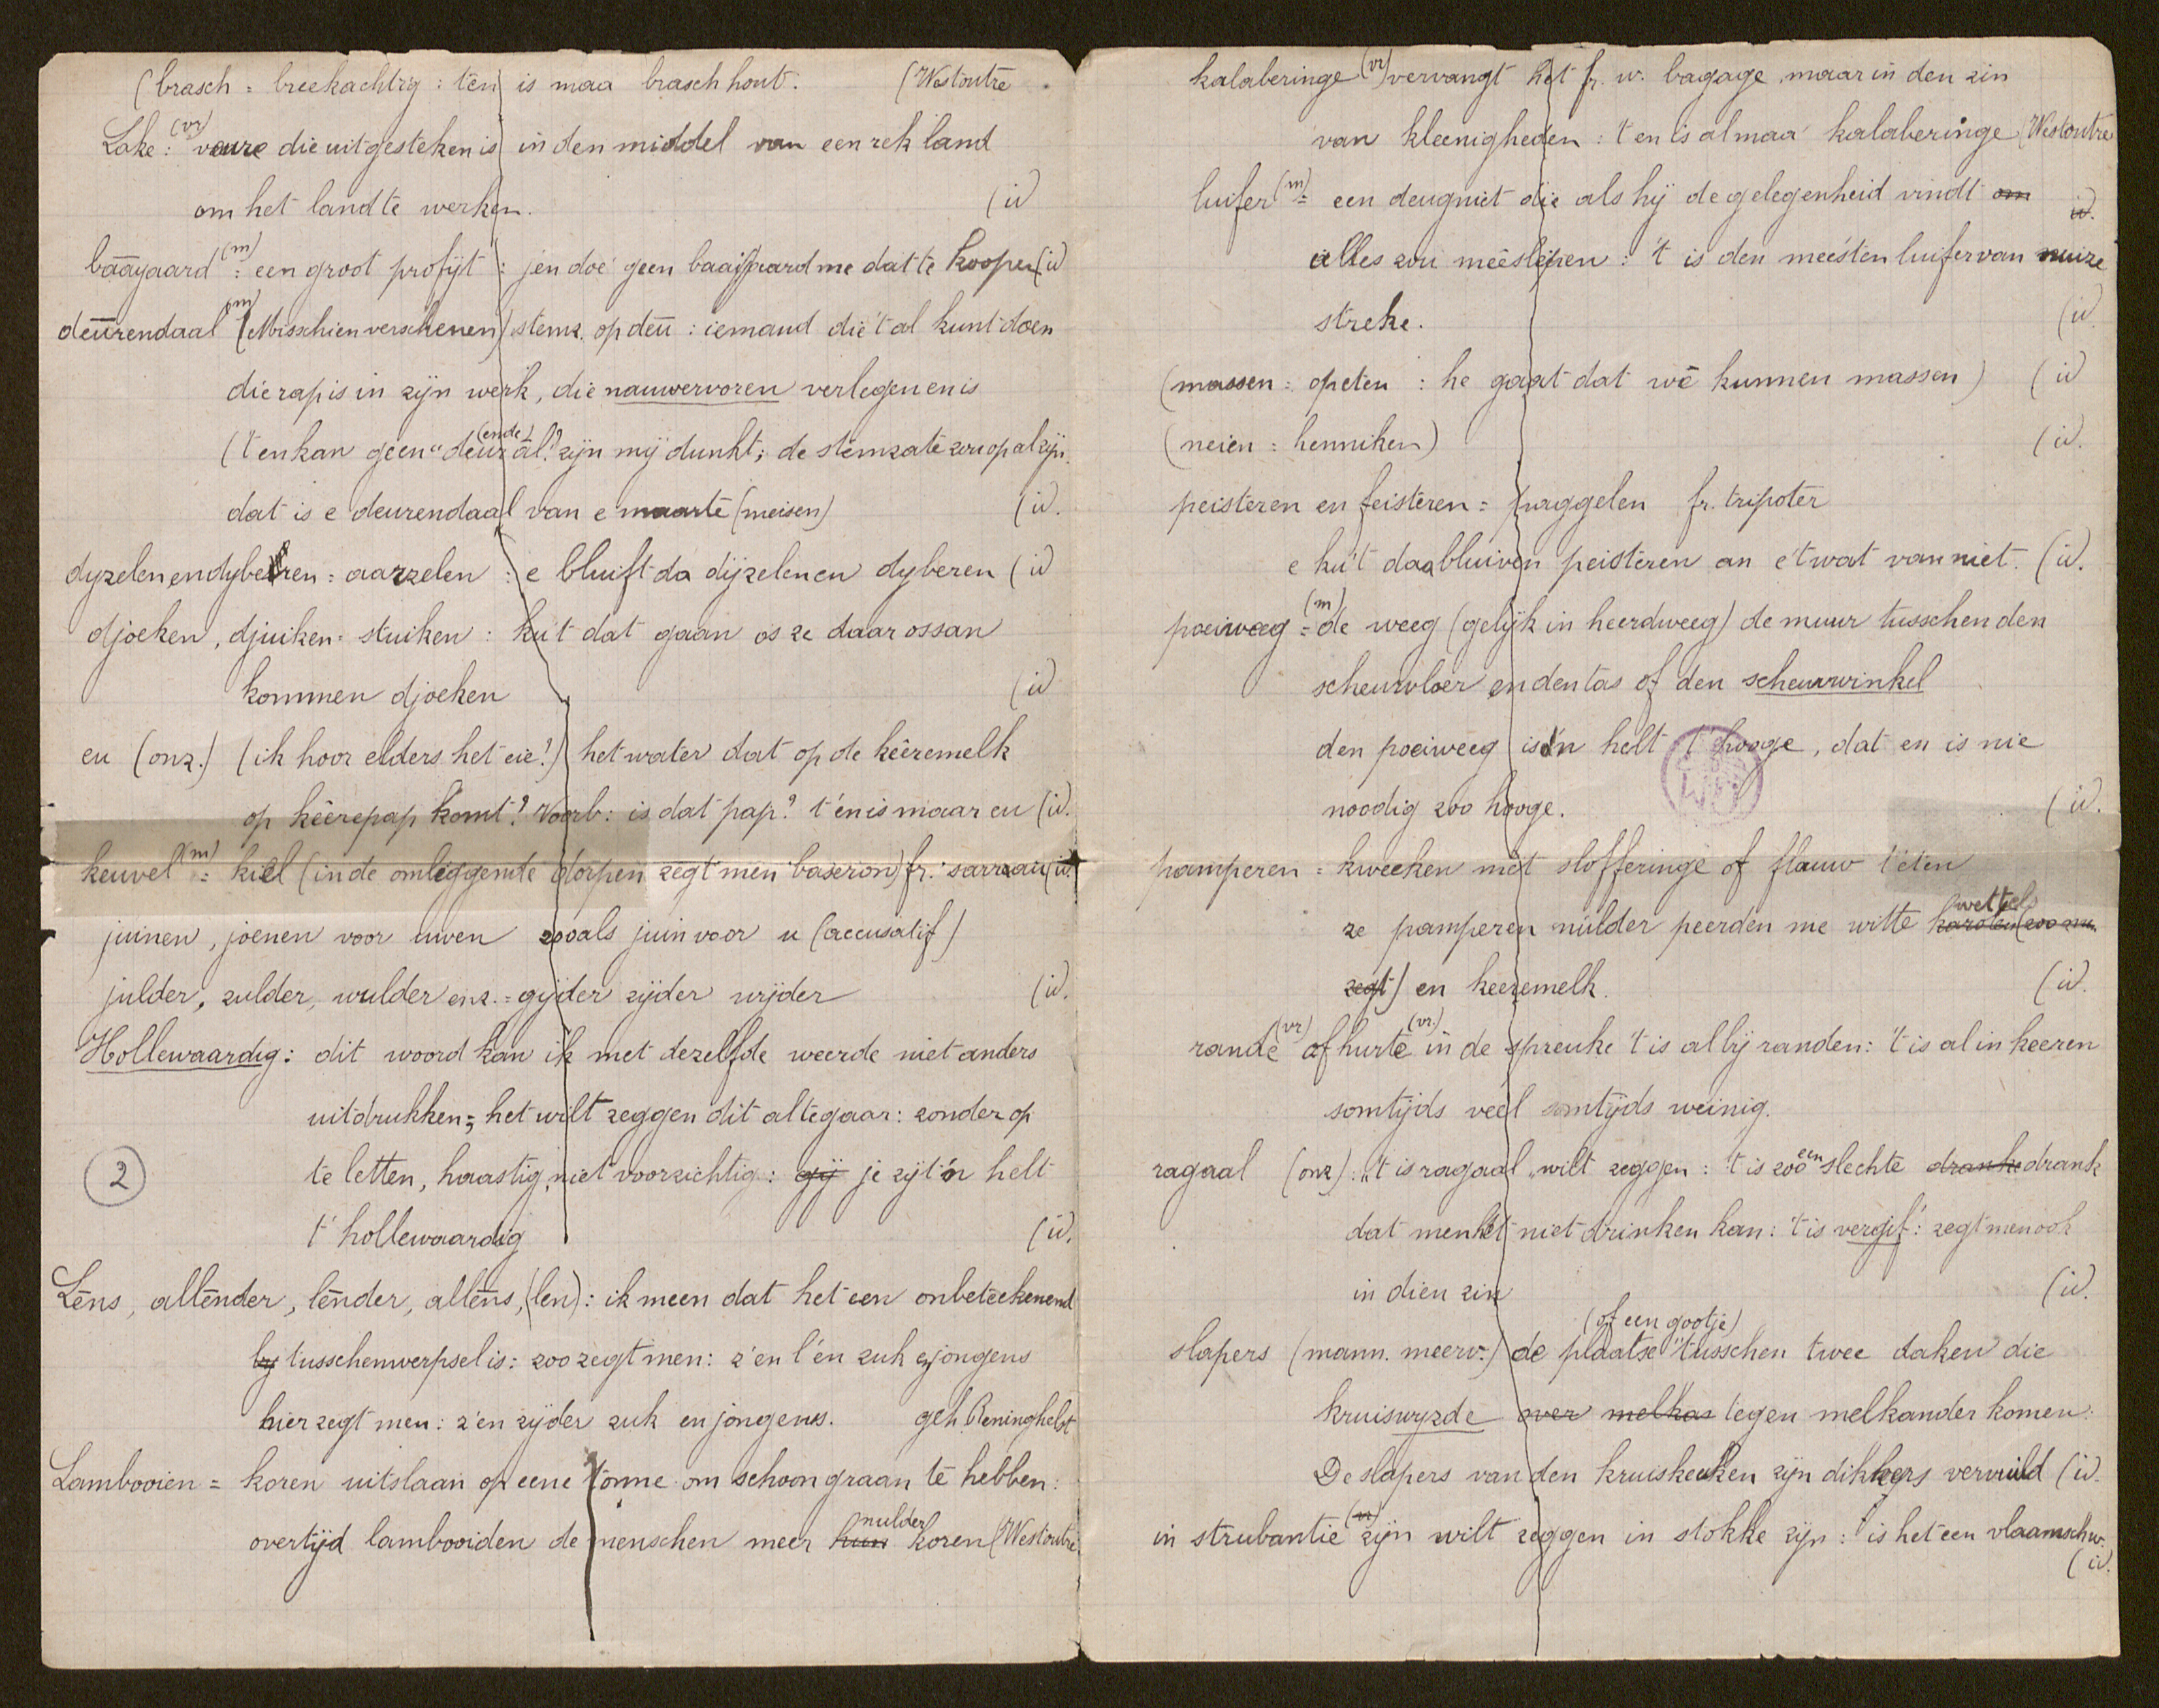 (brasch = breekachtig : ten is maa brasch hout. (Westoutre
Lake (vr) : veure die uitgesteken is in den middel van een rek land
om het land te werken. (id
baāyaard (m) = een groot profijt : j'en doe geen baaiyaard me dat te koopen (id
deūrendaal (m) (Misschien verschenen) stemz. op deū : iemand die 't al kunt doen
die rap is in zijn werk, die nauwervoren verlegen en is
('t en kan geen "deur (ende) al" zijn mij dunkt; de stemzate zou op al zijn.
dat is e deurendaal van e maarte (meisen) (id.
dyzelen en dyberen = aarzelen : e bluift da dijzelen en dyberen (id
djoeken, djuiken = stuiken : ku't dat gaan os ze daar ossan
kommen djoeken (id
eu (onz.) (ik hoor elders het eie!) het water dat op de kêeremelk
op kêerepap komt? Voorb: is dat pap? 't en is maar eu (id.
keuvel (m) = kiel (in de omliggende dorpen zegt men baseron) fr. sarrau (id.
juinen, joenen voor uwen zooals juin voor u (accusatif)
julder, zulder, wulder enz. = gijder zijder wijder (id.
Hollewaardig : dit woord kan ik met dezelfde weerde niet anders
uitdrukken; het wilt zeggen dit altegaar : zonder op
te letten, haastig, niet voorzichtig : gij je zijt 'n helt
2
t' hollewaardig (id.
Lēns, allēnder, lēnder, allēns, (len) : ik meen dat het een onbeteekenend
bij tusschenwerpsel is : zoo zegt men : z'en l'en zuk en jongens
hier zegt men : z'en zijder zuk en jongens. geh. Reninghelst
Lambooien = koren uitslaan op eene tonne om schoon graan te hebben :
overtijd lambooiden de menschen meer hun nulder koren (Westoutre
kalaberinge (vr) vervangt het fr. w. bagage, maar in den zin
van kleenigheden : 't en is al maa kalaberinge (Westoutre
luifer (m) = een deugniet die als hij de gelegenheid vindt om id.
alles zou meêslepen : 't is den meesten luifer van nuize
streke. (id.
(massen = opeten : he gaat dat wē kunnen massen) (id
(neien = henniken) (id.
peisteren en feisteren = fraggelen fr. tripoter
e ku't daa bluiven peisteren an e'twat van niet. (id.
poeiweeg (m) = de weeg (gelijk in heerdweeg) de muur tusschen den
scheurvloer en den tas of den scheurwinkel
den poeiweeg is 'n helt t' hooge, dat en is nie
noodig zoo hooge. (id.
pamperen = kweeken met slofferinge of flauw t'eten
ze pamperen nulder peerden me witte wettels karoten (zoo zu.
zegt) en keeremelk. (id.
rande (vr) of hurte (vr.) in de spreuke 't is al bij randen : 't is al in keeren
somtijds veel somtijds weinig.
ragaal (onz) : "'t is ragaal" wilt zeggen : 't is zoo een slechte dranke drank
dat men het niet drinken kan : 't is vergif : zegt men ook
in dien zin (id.
slapers (mann. meerv.) de plaatse (of een gootje) tusschen twee daken die
kruiswyzde over melkas tegen melkander komen :
De slapers van den kruiskeuken zijn dikkers vervuild (id.
in strubantie (vr) zijn wilt zeggen in stokke zijn : is het een vlaamsch w.
(id.